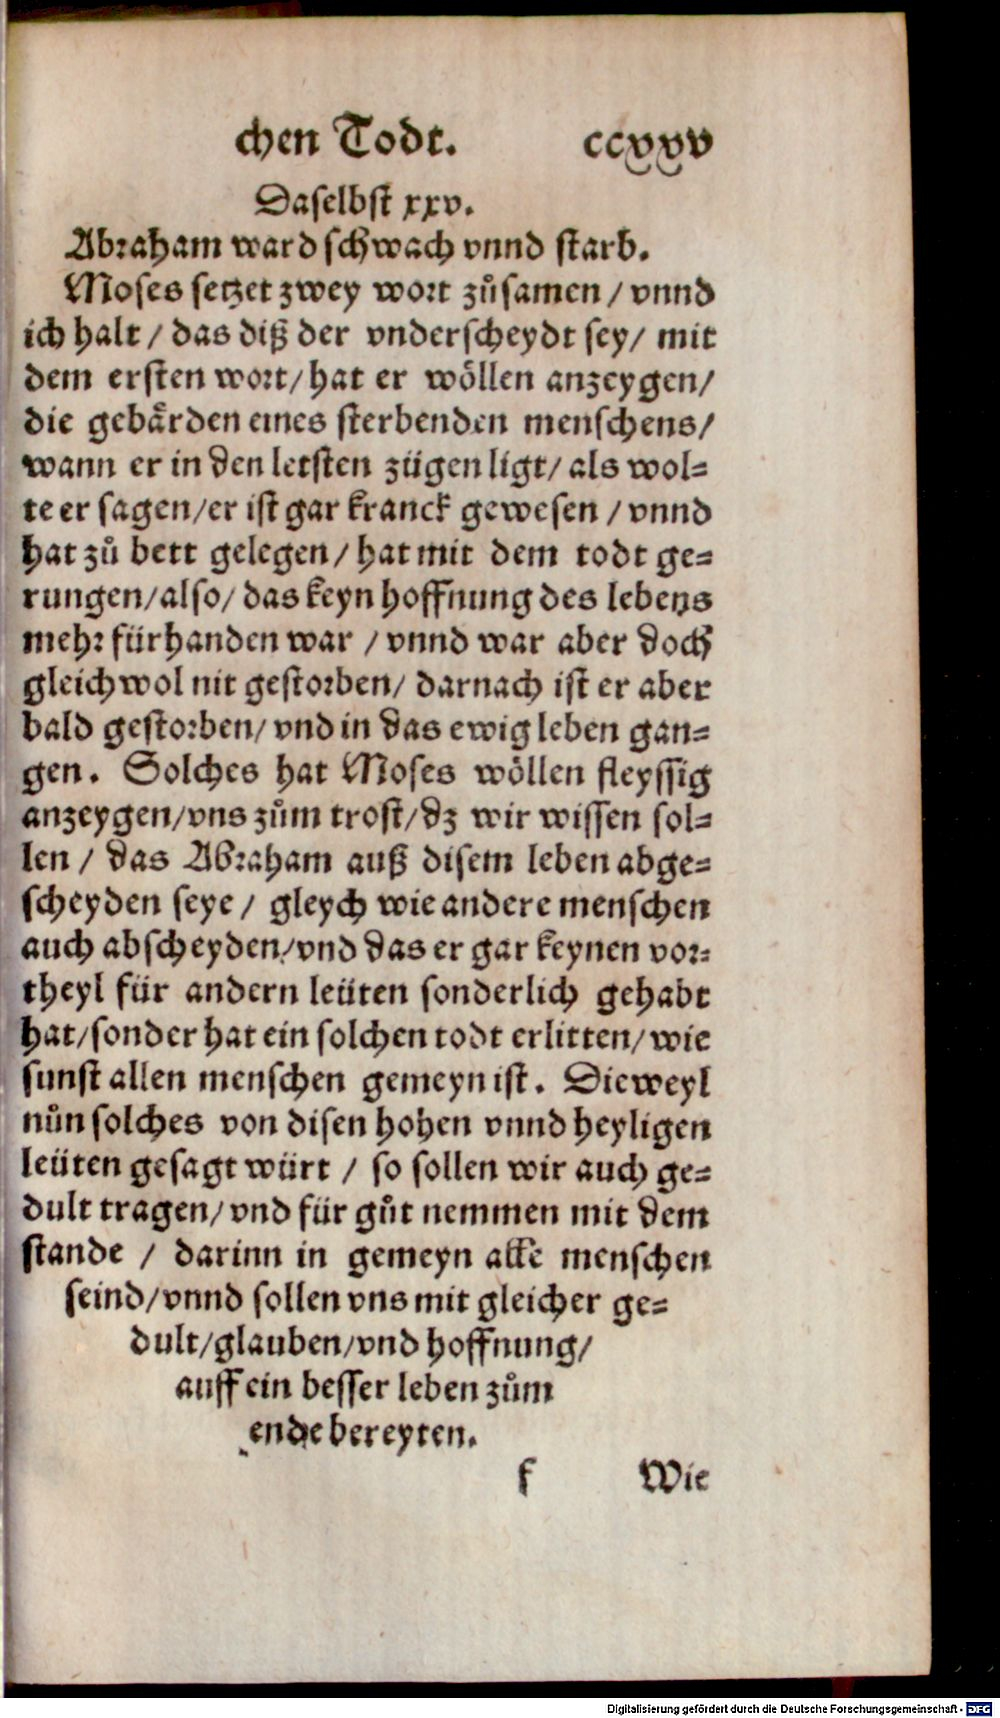 chen Todt. ccxxv
Daselbst xxv.
Abraham ward schwach vnnd starb.
Moses setzet zwey wort zůsamen / vnnd
ich halt / das diß der vnderscheydt sey / mit
dem ersten wort / hat er wöllen anzeygen /
die gebärden eines sterbenden menschens /
wann er in den letsten zügen ligt / als wol⸗
te er sagen / er ist gar kranck gewesen / vnnd
hat zů bett gelegen / hat mit dem todt ge⸗
rungen / also / das keyn hoffnung des lebens
mehr fürhanden war / vnnd war aber doch
gleichwol nit gestorben / darnach ist er aber
bald gestorben / vnd in das ewig leben gan⸗
gen. Solches hat Moses wöllen fleyssig
anzeygen / vns zům trost / dz wir wissen sol⸗
len / das Abraham auß disem leben abge⸗
scheyden seye / gleych wie andere menschen
auch abscheyden / vnd das er gar keynen vor⸗
theyl für andern leüten sonderlich gehabt
hat / sonder hat ein solchen todt erlitten / wie
sunst allen menschen gemeyn ist. Dieweyl
nůn solches von disen hohen vnnd heyligen
leüten gesagt würt / so sollen wir auch ge⸗
dult tragen / vnd für gůt nemmen mit dem
stande / darinn in gemeyn alle menschen
seind / vnnd sollen vns mit gleicher ge⸗
dult / glauben / vnd hoffnung /
auff ein besser leben zům
ende bereyten.
f Wie
Digitalisierung gefördert durch die Deutsche Forschungsgemeinschaft - DFG